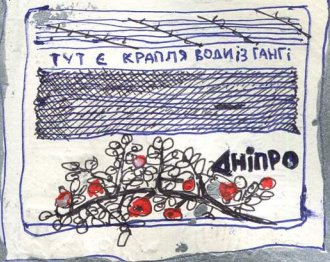 ТУТ Є КРАПЛЯ ВОДИ ІЗ ГАНГІ
ДНІПРО